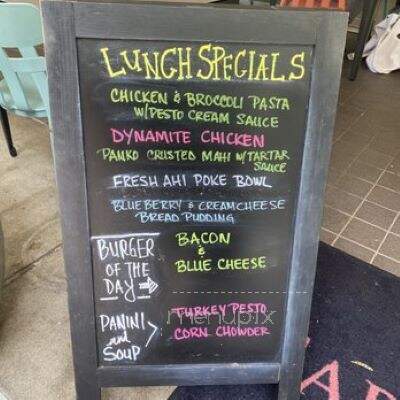 LUNCH SPECIALS
CHICKEN & BROCCOLI PASTA
W/PESTO CREAM SAUCE
DYNAMITE CHICKEN
PANKO CRUSTED MAHI W/TARTAR
SAUCE
FRESH AHI POKE BOWL
BLUEBERRY & CREAMCHEESE
BREAD PUDDING
BURGER
OF THE
DAY
BACON
&
BLUE CHEESE
PANINI
and
SOUP
TURKEY PESTO
CORN CHOWDER
menupix